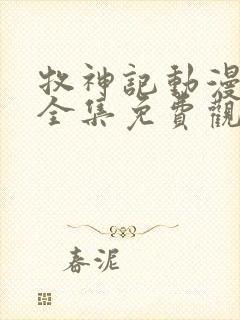 牧神記動漫
全集免費觀
春泥